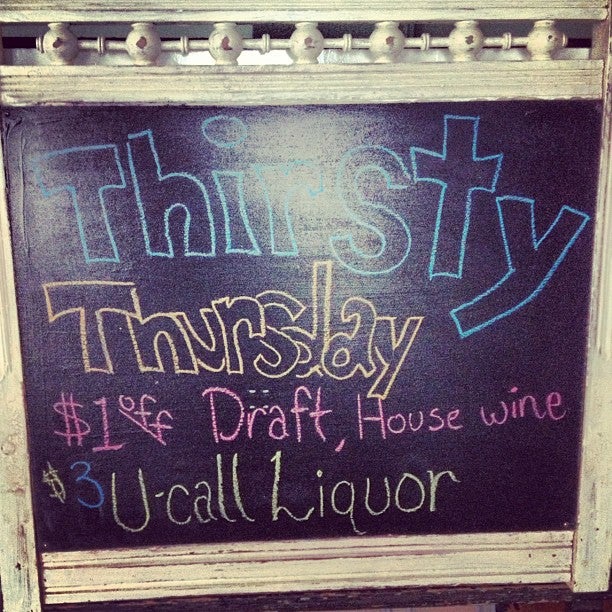 Thirsty
Thursday
$1 off Draft, House wine
$3 U-call Liquor